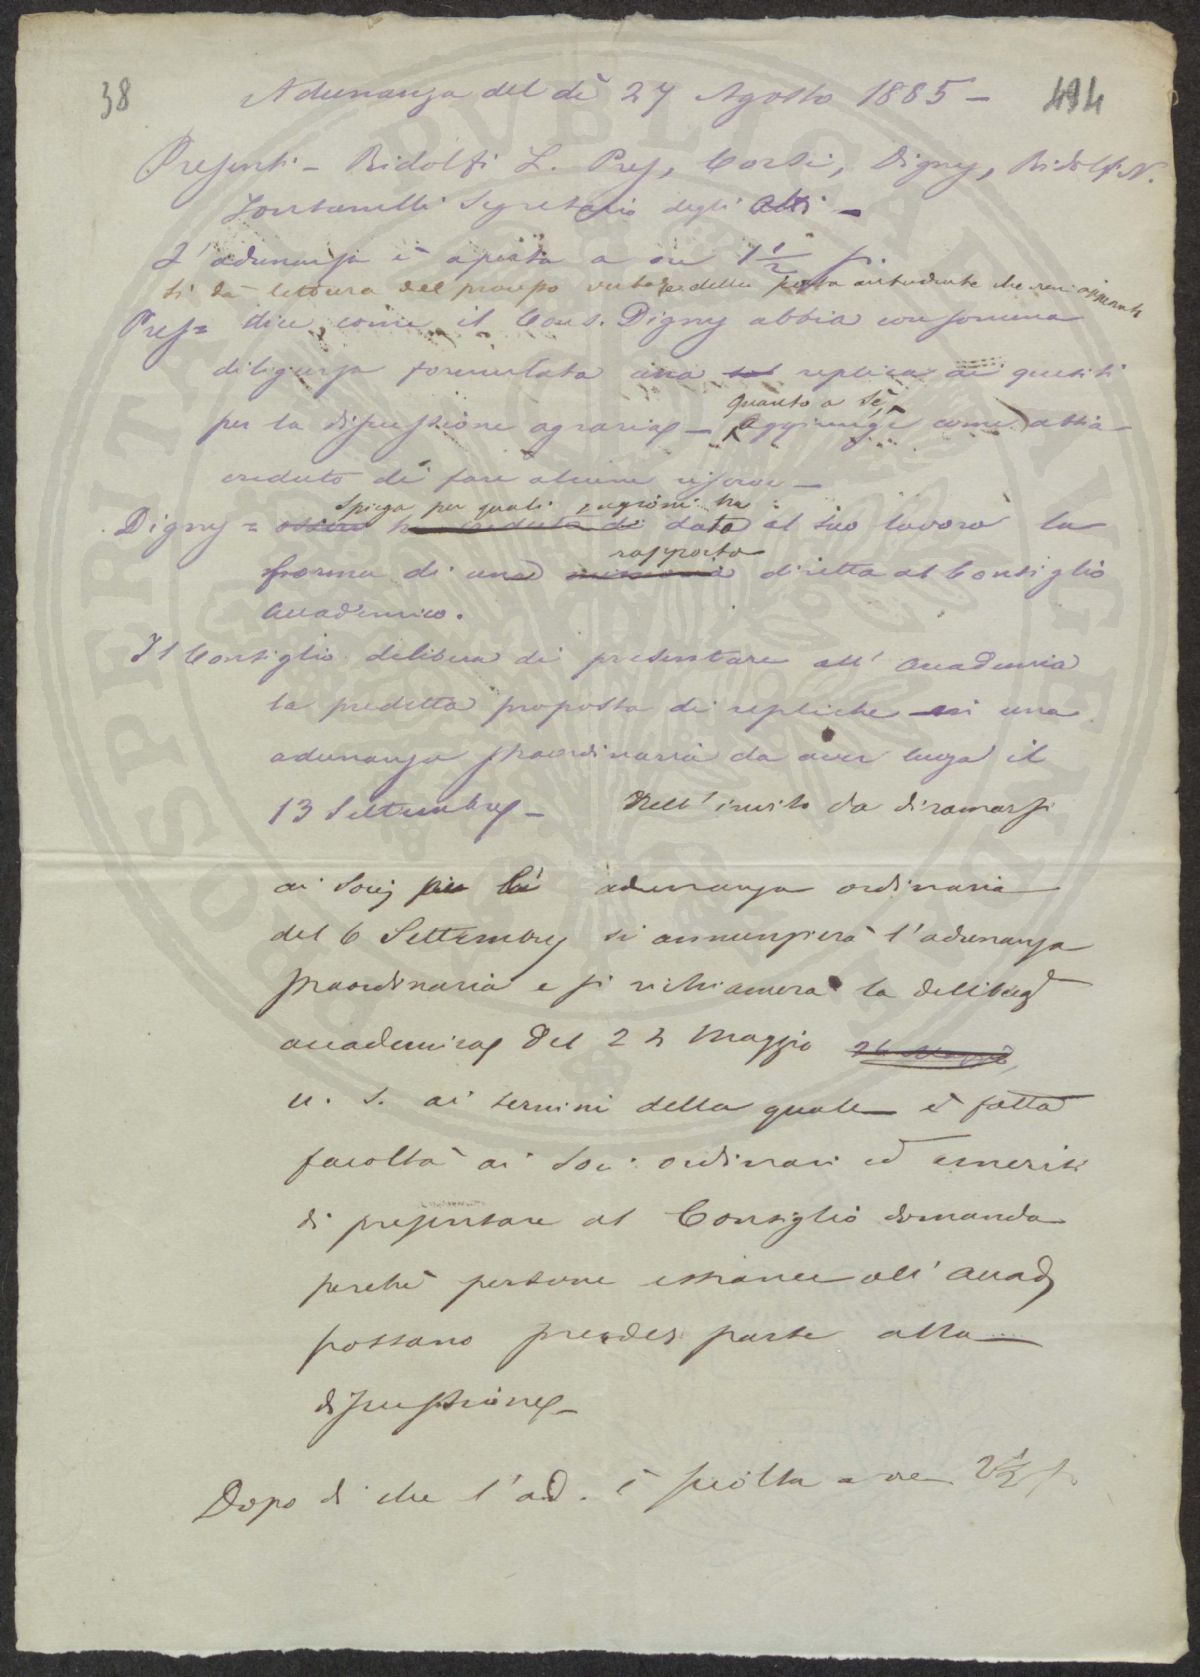 38
494
Adunanza del dì 27 Agosto 1885 -
Presenti - Ridolfi L. Pres, Corsi, Digny, Ridolfi N.
Fontanelli Segretario degli Atti -
L'adunanza è aperta a ore 1 1/2 p.
Si dà lettura del processo verbale della antecedente che viene approvato
Pres = dice, come il Cons. Digny abbia con somma
diligenza formulata una replica ai quesiti
per la discussione agraria - quanto a sè, aggiunge come abbia
creduto di fare alcune riserve -
Digny = spiega per quali ragioni ha dato al suo lavoro la
forma di un rapporto diretta al Consiglio
Accademico.
Il Consiglio delibera di presentare all'Accademia
la predetta proposta di repliche in una
adunanza straordinaria da aver luogo il
13 Settembre - Nell'invito da diramarsi
ai Socj per la adunanza ordinaria
del 6 Settembre si annunzierà l'adunanza
straordinaria e si richiamerà la delibaz
accademica del 24 Maggio
u. s. ai termini della quale è fatta
facoltà ai Soci ordinari ed emeriti
di presentare al Consiglio domanda
perchè persone estranee all'Accad
possano prender parte alla
discussione -
Dopo di che l'ad. è sciolta a ore 2 1/2 p.